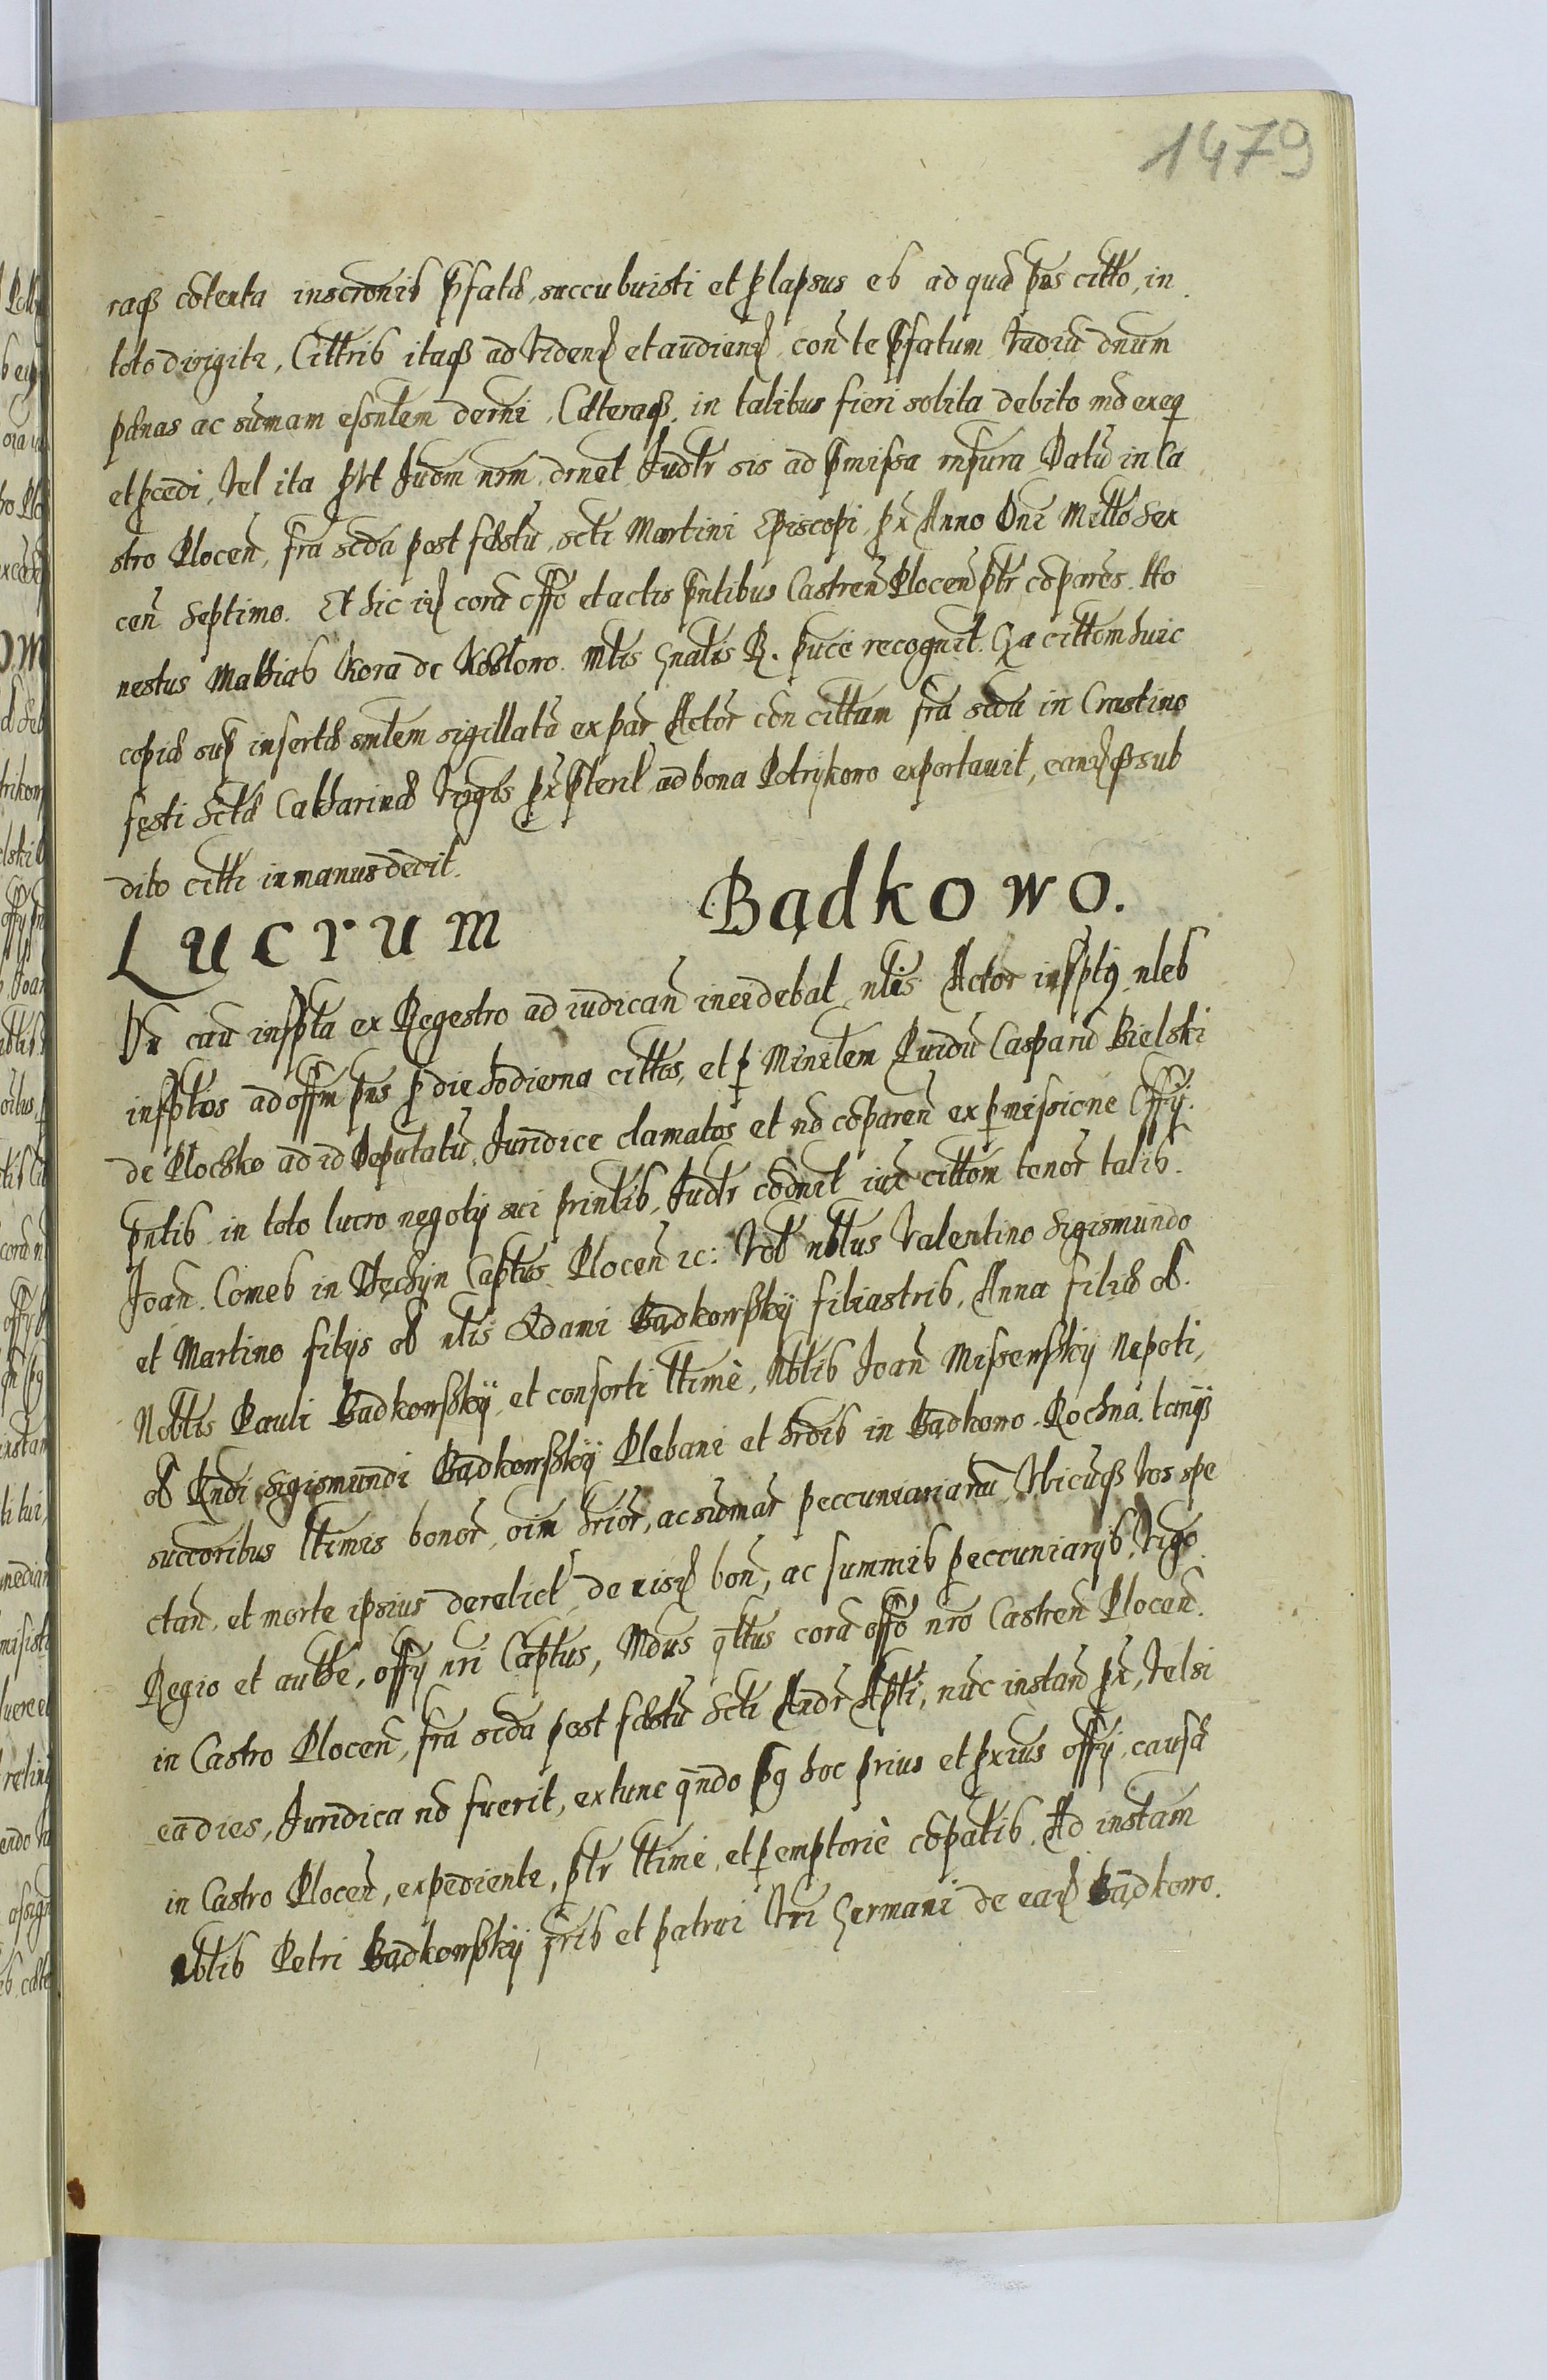 1479
raqz cotenta inscronis pfatæ, succubuisti et plapsus es ad quã pns citto, in
toto dirigitr, Cittris itaqz ad videnz et audienz con te pfatum vadiũ dnum
pænas ac sumam essntem derni, Cæteraqz in talibus fieri solita debito mõ exeq
et pcedi, vel ita prt Judm nrm drnet Judtr sis ad pmissa rnsura Datũ in Ca
stro Plocen, fra scda post festũ scti Martini Episcopi px Anno Dni Millo Sex
cen Septimo. Et hic iz corã offo et actis pntibus Castren Plocen ptr compares. Ho
nestus Mathias Kora de Koslowo mtis gnalis R. puce recognit. Qa cittom huic
copiæ sup insertæ smlem sigillatã ex par Actor con cittam fra scda in Crastino
festi Sctæ Catharinæ vrgis px pterit ad bona Potrykowo exportavit, eamqz sub
dito citti in manus dedit.
Lucrum Bądkowo.
Dũ cau infpta ex Regestro ad iudican incidebat nlis Actor infptq nles
infptos ad offm pns p die hodierna cittos, et p Minrlem Puidũ Casparũ Bielski
de Plochsko ad id Deputatũ, Juridice clamatos et nõ coparen ex pmissione Offy.
pntis in toto lucro negoty sui printis, Judtr codnit iux cittom tenor talis.
Joan. Comes in Tęchyn Captus Plocen zc: Vob nbtus Valentino Sigismundo
et Martino filys ob nlis Adami Bądkowsky filiastris, Anna filiæ ob.
Nobtis Pauli Bądkowsky, et consorti ttimè, Nbtis Joan Missewsky Nepoti,
ob Rndi Sigismundi Bądkowsky Plebani et hrdis in Bądkowo Rochna tanqz
succoribus ttimis bonor, oim hrior, ac sumar peccuniariarũ, Vbicuqz vos spe
ctan, et morte ipsius derelict, de eisz bon, ac summis peccuniarys, vigo
Regio et authe, offy nri Captus, Mdus qttus corã offo nro Castren Plocen.
in Castro Plocen, fra scda post festũ Scti Andr Apti, nuc instan px, velsi
ea dies, Juridica nõ fuerit, extunc qndo pq hoc prius et pxius offy, causæ
in Castro Plocen, expediente, ptr ttime, et pemptoriè copatis. Ad instam
Nbtis Petri Bądkowsky fris et patrui vri Germani de eaz Bądkowo.